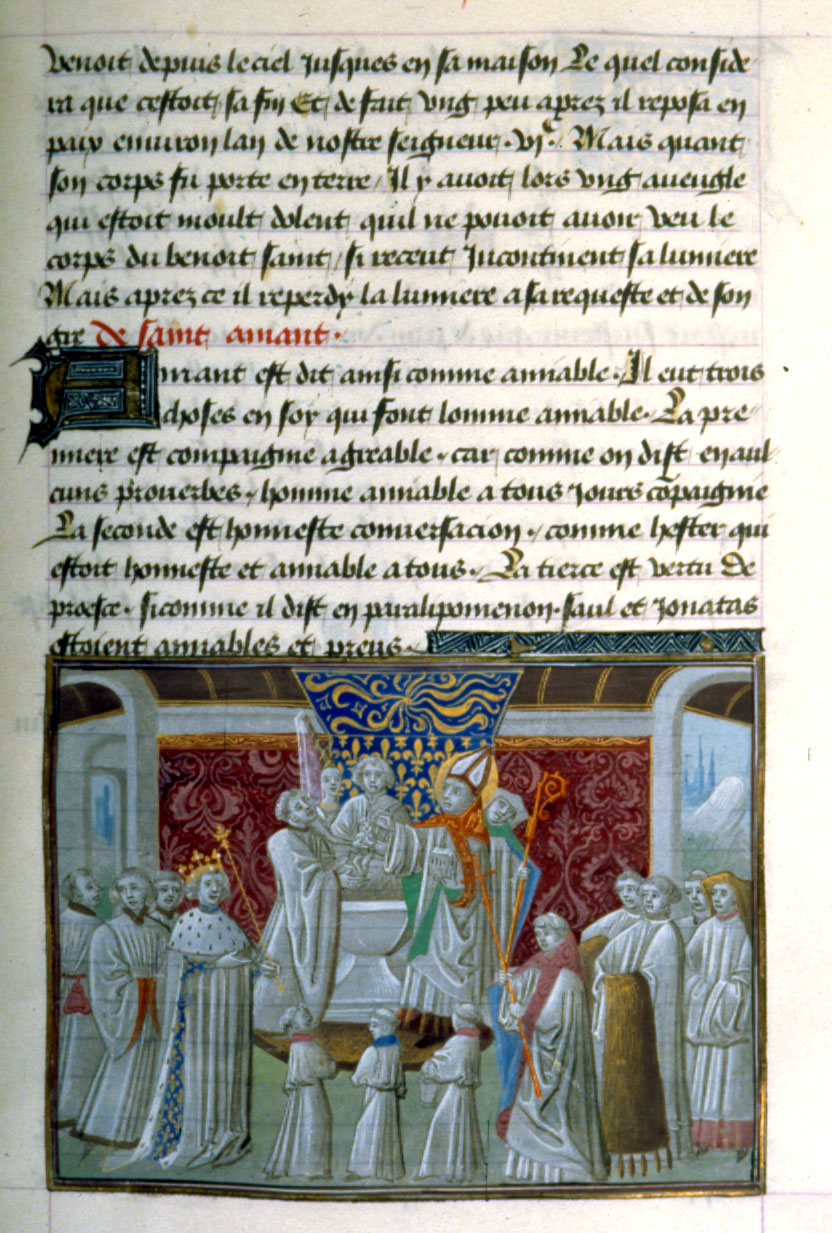 benoit depuis le ciel Jusques en sa maison Le quel conside
ra que cestoit sa fin Et de fait vng peu aprez il reposa en
paix enuiron lan de nostre seigneur · vjᶜ · Mais quant
son corps fu porte en terre / Il y auoit lors vng aueugle
qui estoit moult dolent quil ne pouoit auoir veu le
corps du benoit saint / si receut Incontinent sa lumiere
Mais aprez ce il reperdy la lumiere a sa requeste et de son
gre de saint amant ·
Amant est dit ainsi comme amable · Il eut trois
choses en soy qui font lomme amable · La pre
miere est compaignie agreable · car comme on dist en aul
cuns prouerbes · homme amable a tous Jours cōpaignie
La seconde est honneste conuersacion · comme hester qui
estoit honneste et amable a tous · La tierce est vertu de
proesce · sicomme il dist en paralipomenon · saul et Jonatas
estoient amables et preus ·